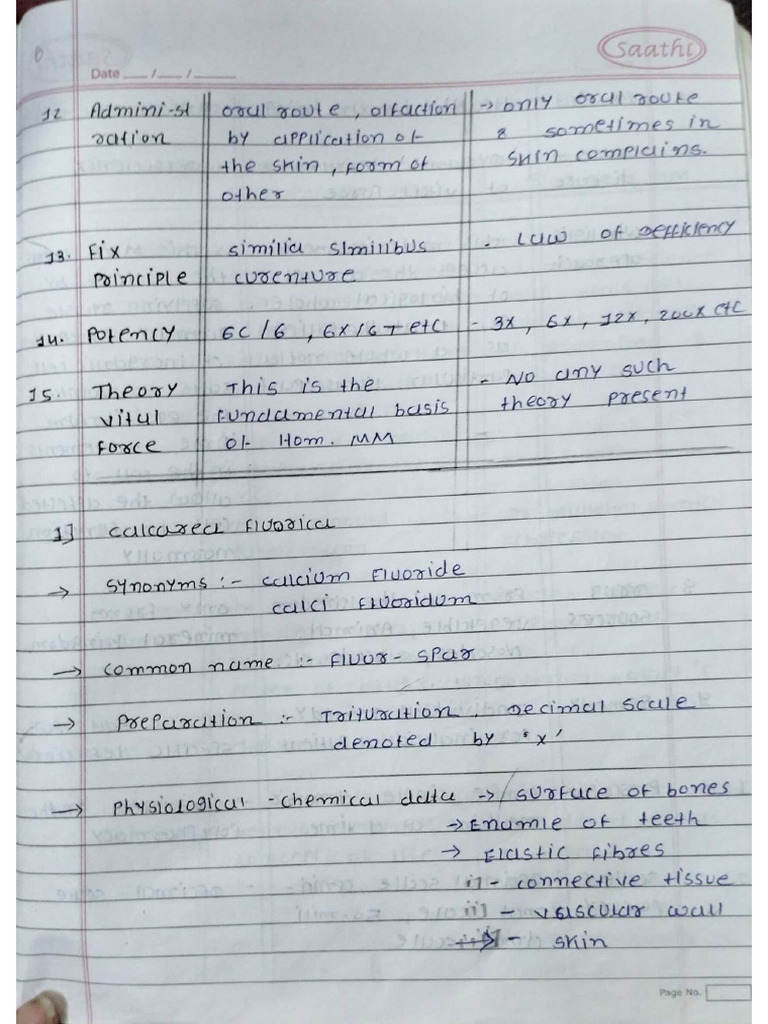 saathi
Date ___/___/___
12 Admini-st oral route, olfaction -> only oral route
ration by application of & sometimes in
the skin, form of skin complains.
other
13. Fix similia similibus - Law of defficiency
principle curenture
14. Potency 6C/6, 6X/6T etc - 3x, 6x, 12x, 200x etc
15. Theory This is the - No any such
vital fundamental basis theory present
force of Hom. MM
1] calcarea fluorica
→ synonyms :- calcium fluoride
calci fluoridum
→ common name :- fluor-spar
→ preparation :- Trituration, Decimal scale
denoted by 'x'
→ physiological-chemical data → surface of bones
→ Enamle of teeth
→ Elastic fibres
i]- connective tissue
ii]- vasscular wall
- skin
Page No.